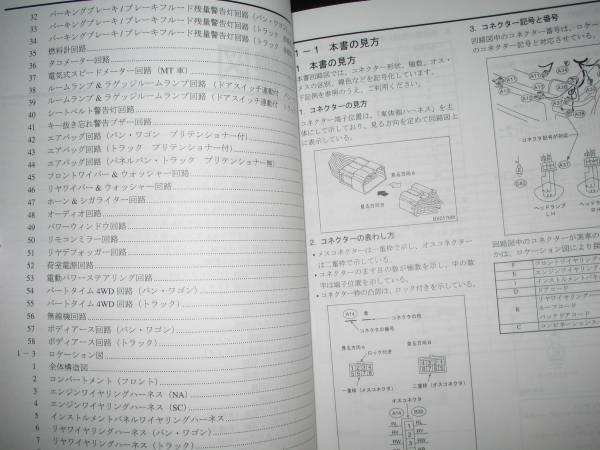 32 パーキングブレーキ/ブレーキフルード残量警告灯回路(バン・ワゴ
33 パーキングブレーキ/ブレーキフルード残量警告灯回路(トラック
34 パーキングブレーキ/ブレーキフルード残量警告灯回路(トラック
35 燃料計回路
36 タコメーター回路
37 電気式スピードメーター回路(MT車)
38 ルームランプ&ラゲッジルームランプ回路(ドアスイッチ連動付
39 ルームランプ&ラゲッジルームランプ回路(ドアスイッチ連動
40 シートベルト警告灯回路
41 キー抜き忘れ警告ブザー回路
42 エアバッグ回路(バン・ワゴン プリテンショナー付)
43 エアバッグ回路(トラック プリテンショナー付)
44 エアバッグ回路(パネルバン・トラック プリテンショナー無)
45 フロントワイパー&ウォッシャー回路
46 リヤワイパー&ウォッシャー回路
47 ホーン&シガライター回路
48 オーディオ回路
49 パワーウィンドウ回路
50 リモコンミラー回路
51 リヤデフォッガー回路
52 荷室電源回路
53 電動パワーステアリング回路
54 パートタイム4WD回路(バン・ワゴン)
55 パートタイム4WD回路(トラック)
56 無線機回路
57 ボディアース回路(バン・ワゴン)
58 ボディアース回路(トラック)
1-3 ロケーション図
1 全体構造図
2 コンパートメント(フロント)
3 エンジンワイヤリングハーネス(NA)
4 エンジンワイヤリングハーネス(SC)
5 インストルメントパネルワイヤリングハーネス
6 リヤワイヤリングハーネス(バン・ワゴン)
7 リヤワイヤリングハーネス(トラック)
1-1 本書の見方
1 本書の見方
本書回路図では、コネクター形状、極数、オス・
メスの区別、線色などを記号化しています。
下記例を参照のうえ、ご利用ください。
1. コネクターの見方
コネクター端子位置は、「車体側ハーネス」を主
体にして示しており、見る方向を定めて回路図上
に表示している。
見る方向A
見る方向B
2. コネクターの表わし方
• メスコネクターは一重枠で示し、オスコネクター
は二重枠で示している。
• コネクターのます目の数が極数を示し、中の数
字は端子位置を示している。
• コネクター枠の凸部は、ロック付きを示している。
A14 黒 コネクタの色
コネクタの番号
見る方向A
見る方向B
ロック付き
一重枠(メスコネクタ)
二重枠(オスコネクタ)
オスコネクタ
A14
RL 1
RY 2
RW 3
3. コネクター記号と番号
回路図中のコネクター番号は、ロケー
のコネクター記号と対応させている。
コネクタ記号が対応
ヘッドランプ
LH
ヘッドランプ
RH
回路図中のコネクターが実車の
かは、ロケーション図により探
F フロントワイヤリング
E エンジンワイヤリング
I インストルメント
D ドアコード
R リヤワイヤリング
ルーフコード
バックドアコード
C コンビネーション